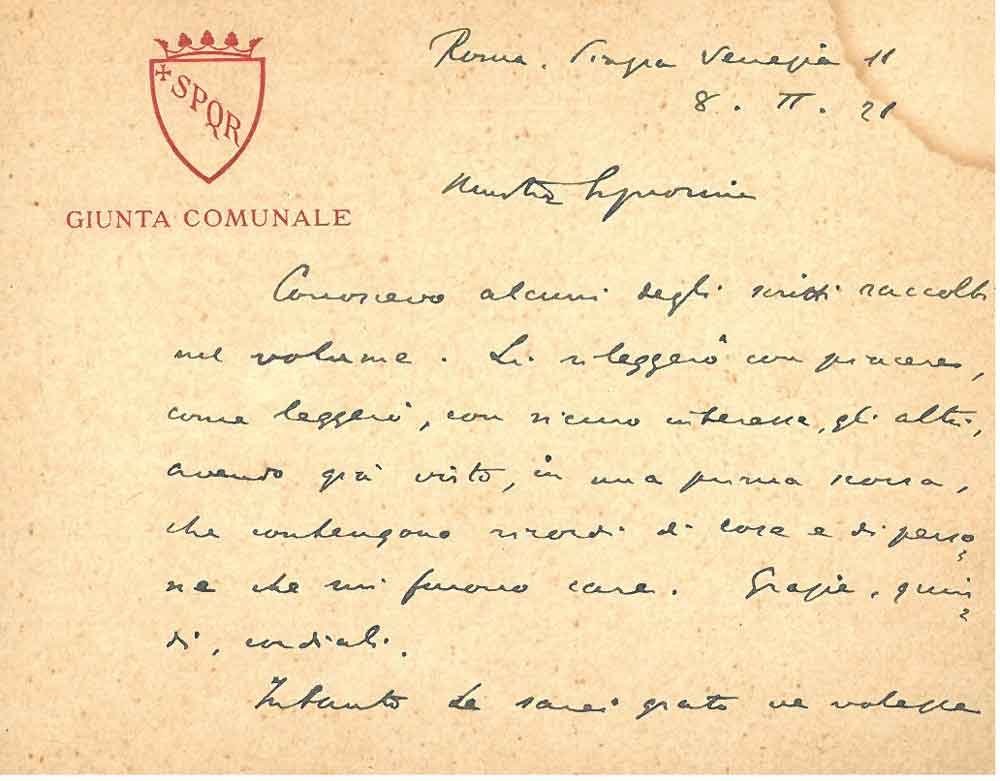 SPQR
GIUNTA COMUNALE
Roma. Piazza Venezia 11
8. II. 21
Illustre Signorina
Conoscevo alcuni degli scritti raccolti
nel volume. Li rileggerò con piacere,
come leggerò, con sicuro interesse, gli altri,
avendo già visto, in una prima scorsa,
che contengono ricordi di cose e di perso
ne che mi furono care. Grazie, quin
di, cordiali.
Intanto Le sarei grato se volesse